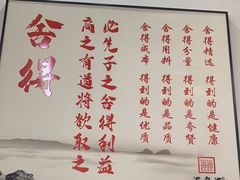 舍得
商之有道将欲取之
必先予之舍得利益
舍得成本 得到的是优质
舍得用料 得到的是品质
舍得分量 得到的是夸赞
舍得精选 得到的是健康